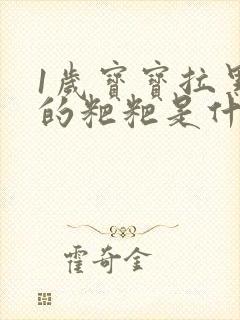 1歲寶寶拉黑
的粑粑是什
霍奇金